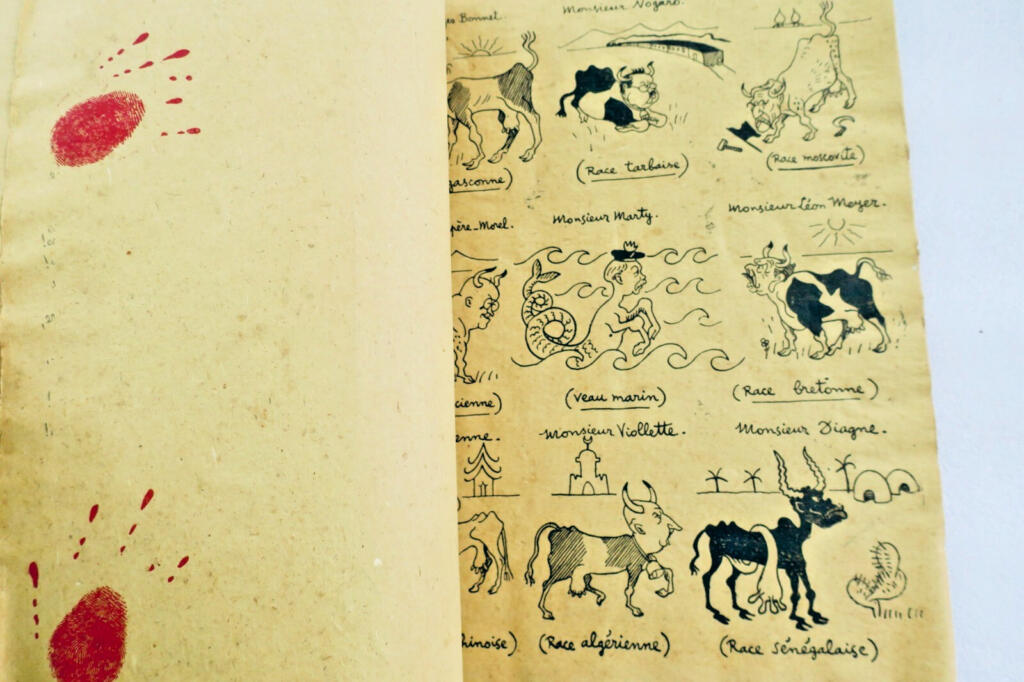 es Bonnet.
Monsieur Nogaro.
gasconne)
(Race tarbaise)
(Race moscovite)
père-Morel.
Monsieur Marty.
Monsieur Léon Meyer.
cienne)
(veau marin)
(Race bretonne)
enne.
Monsieur Viollette.
Monsieur Diagne.
hinoise)
(Race algérienne)
(Race sénégalaise)